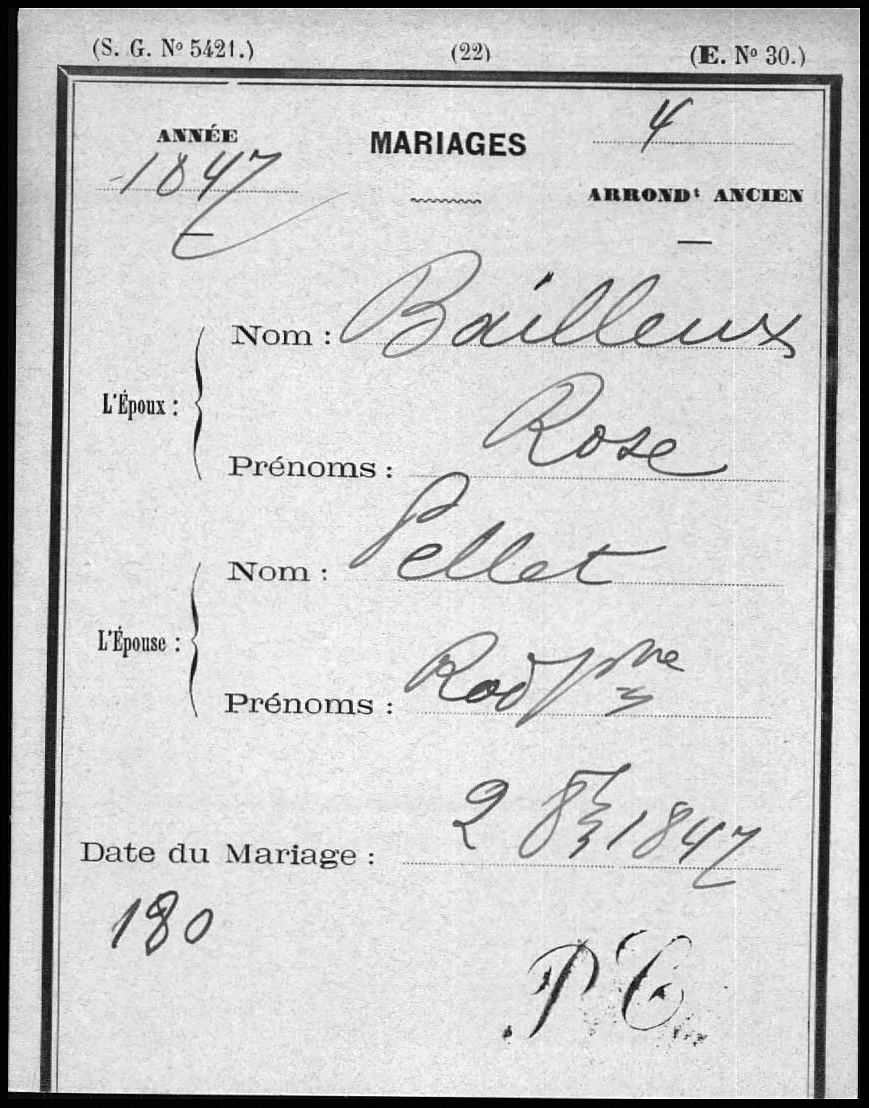 (S. G. Nº 5421.) (22) (E. Nº 30.)
ANNÉE MARIAGES 4
1847 ARRONDt ANCIEN
L'Époux : Nom : Bailleux
Prénoms : Rose
L'Épouse : Nom : Pellet
Prénoms :
Date du Mariage : 2 8bre 1847
180
P C